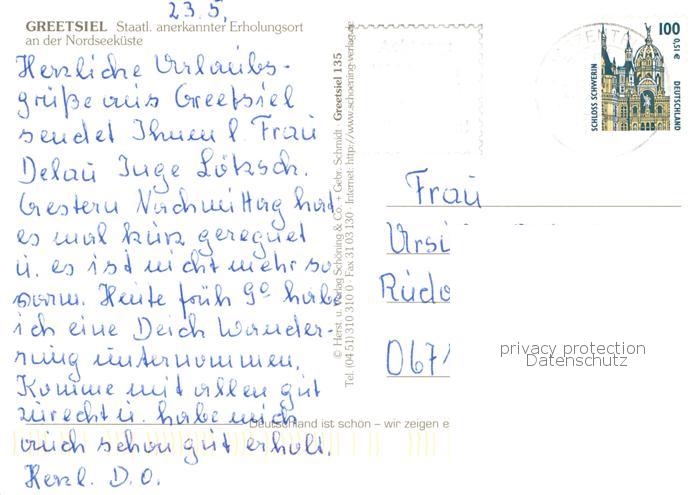 23.5,
GREETSIEL Staatl. anerkannter Erholungsort
an der Nordseeküste
Herzliche Urlaubs-
grüße aus Greetsiel
sendet Ihnen l. Frau
Delau Inge Lötzsch.
Gestern Nachmittag hat
es mal kurz geregnet
u. es ist nicht mehr so
warm. Heute früh 9º habe
ich eine Deich Wander-
rung unternommen,
Komme mit allen gut
zurecht u. habe mich
auch schon gut erholt.
Herzl. D.O.
© Herst. u. Verlag Schöning & Co. + Gebr. Schmidt · Greetsiel 135
Tel. (04 51) 310 310 0 · Fax 31 03 130 · Internet: http://www.schoening-verlag.de
Deutschland ist schön – wir zeigen e
SCHLOSS SCHWERIN
100
0,51€
DEUTSCHLAND
Frau
Ursi
Rudo
067
privacy protection
Datenschutz